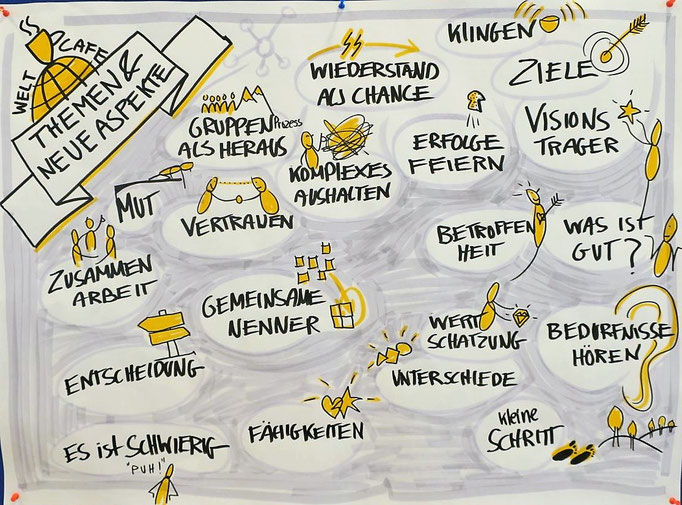 WELT CAFE
THEMEN &
NEUE ASPEKTE
KLINGEN
WIEDERSTAND
ALS CHANCE
ZIELE
GRUPPEN Prozess
ALS HERAUS
KOMPLEXES
AUSHALTEN
ERFOLGE
FEIERN
VISIONS
TRAGER
MUT
VERTRAUEN
BETROFFEN
HEIT
WAS IST
GUT?
ZUSAMMEN
ARBEIT
GEMEINSAME
NENNER
WERT
SCHATZUNG
BEDÜRFNISSE
HÖREN
ENTSCHEIDUNG
UNTERSCHIEDE
ES ist SCHWIERIG
"PUH!"
FÄHIGKEITEN
kleine
SCHRITT